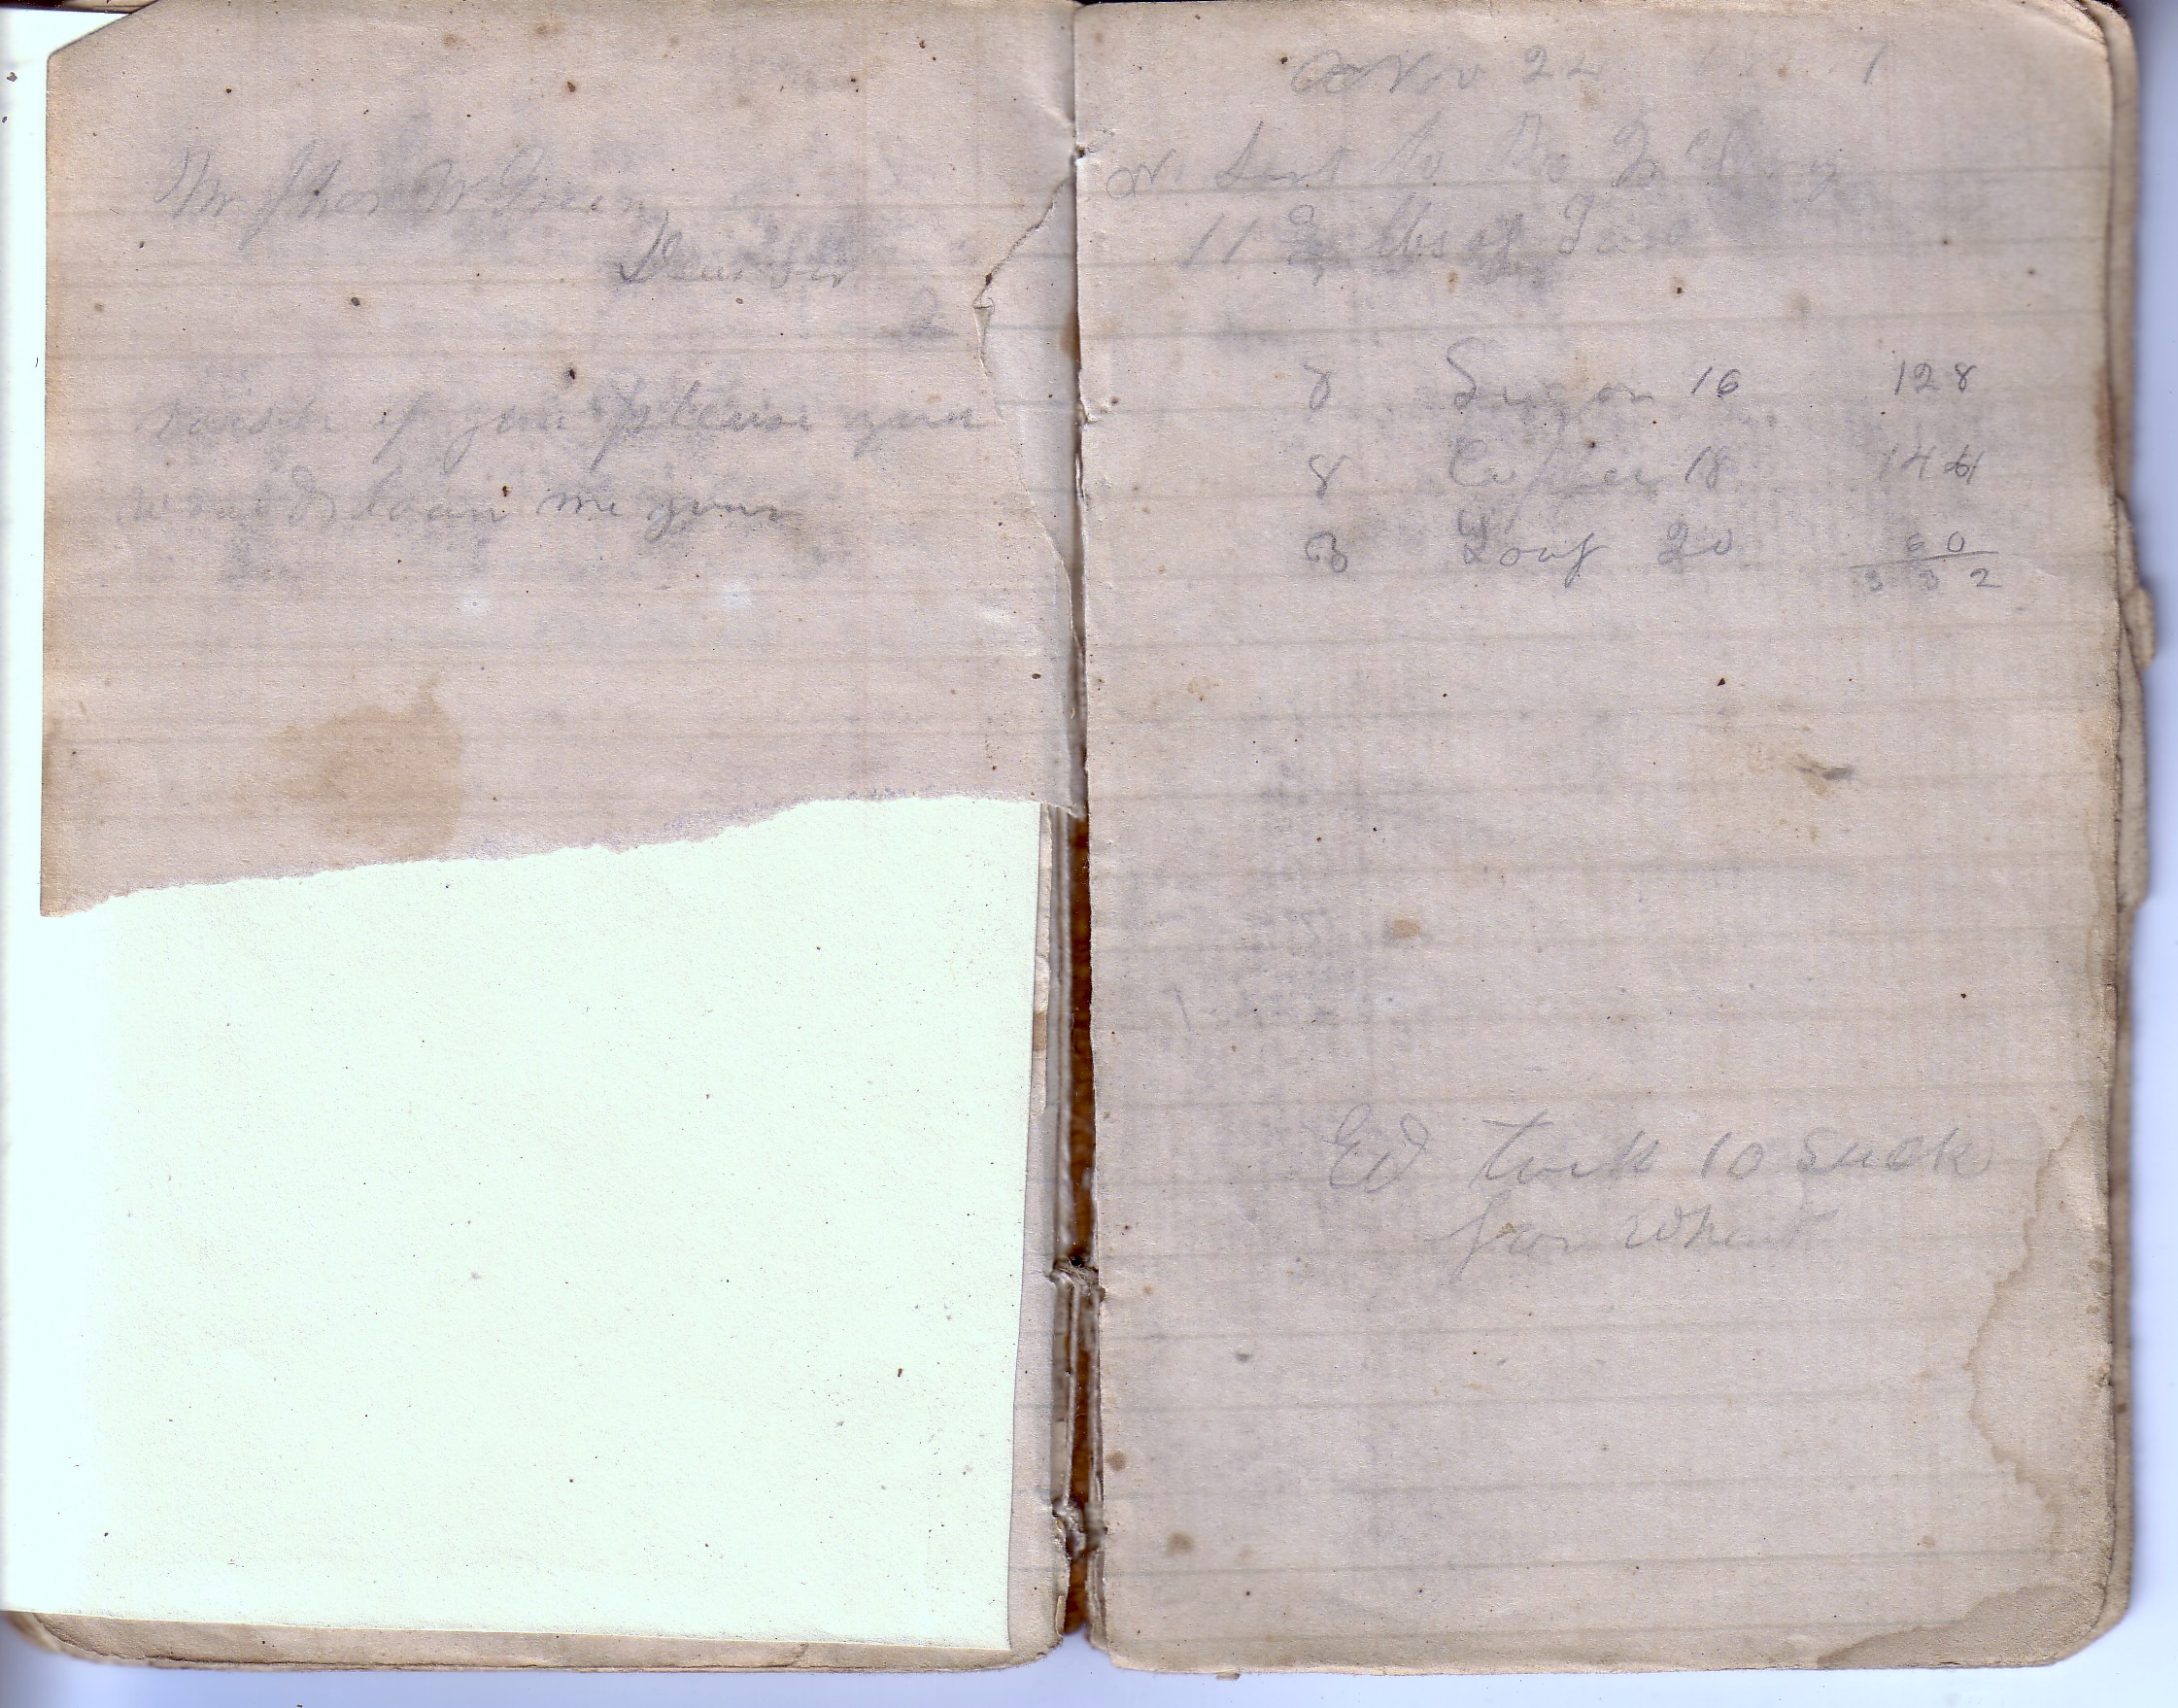 Mr Thos W Green
Dear Sir
I
wish if you please you
would loan me your
Nov 22
Sent to Mc
11 lbs of
8 Sugar 16 128
8 Coffee 18 144
3 Loaf 20 60
3 3 2
Ed took 10 Sack
for Wheat